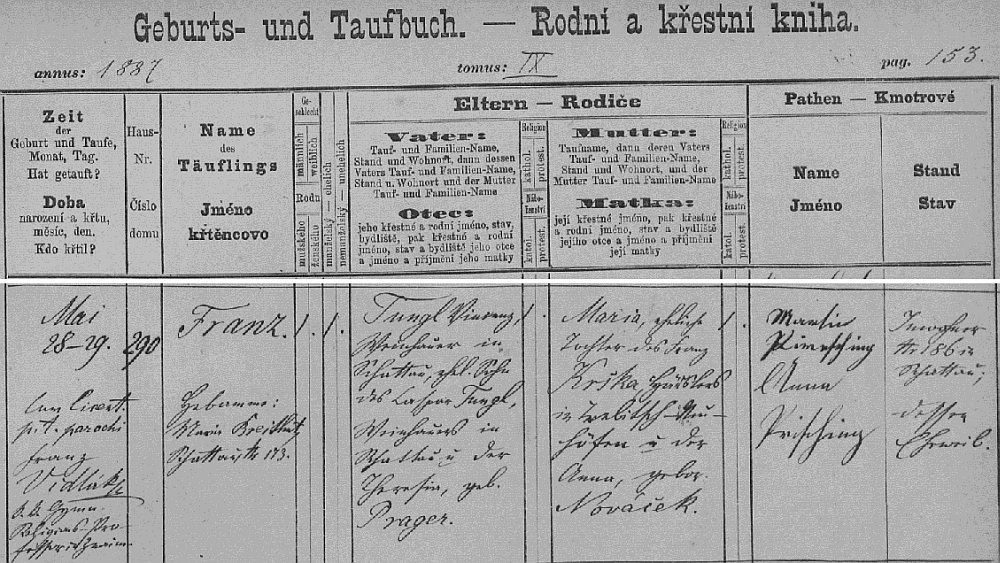 Geburts- und Taufbuch. — Rodní a křestní kniha.
annus: 1887 tomus: IX pag. 153.
Zeit
der
Geburt und Taufe,
Monat, Tag.
Hat getauft?
Doba
narození a křtu,
měsíc, den.
Kdo křtil?
Haus-
Nr.
Číslo
domu
Name
des
Täuflings
Jméno
křtěncovo
Ge-
schlecht
männlich
weiblich
Rodu
mužského
ženského
ehelich
unehelich
manželský
nemanželský
Eltern — Rodiče
Vater:
Tauf- und Familien-Name,
Stand und Wohnort, dann dessen
Vaters Tauf- und Familien-Name,
Stand u. Wohnort und der Mutter
Tauf- und Familien-Name
Otec:
jeho křestné a rodní jméno, stav,
bydliště, pak křestné a rodní
jméno, stav a bydliště jeho otce
a jméno a příjmění jeho matky
Religion
kathol.
protest.
Nábo-
ženství
katol.
protest.
Mutter:
Taufname, dann deren Vaters
Tauf- und Familien-Name,
Stand und Wohnort, und der
Mutter Tauf- und Familien-Name
Matka:
její křestné jméno, pak křestné
a rodní jméno, stav a bydliště
jejího otce a jméno a příjmění
její matky
Religion
kathol.
protest.
Nábo-
ženství
katol.
protest.
Pathen — Kmotrové
Name
Jméno
Stand
Stav
Mai
28-29.
290
Franz
Vidlák
k. k. Gymn.
Religions-Pro-
fessor in Znaim.
Franz.
Hebamme:
Maria
Schattau Nr 173.
1. 1.
Tungl Vincenz,
Weinhauer in
Schattau, ehel. Sohn
des Caspar Tungl,
Weinhauers in
Schattau u der
Theresia, geb.
Prager.
1.
Maria, eheliche
Tochter des Franz
Krška Häuslers
in Trebitsch-Neu-
höfen u der
Anna, gebor.
Nováček.
1.
Martin
Prisching
Anna
Prisching
Inwohner
Nr 186 in
Schattau;
dessen
Eheweib.